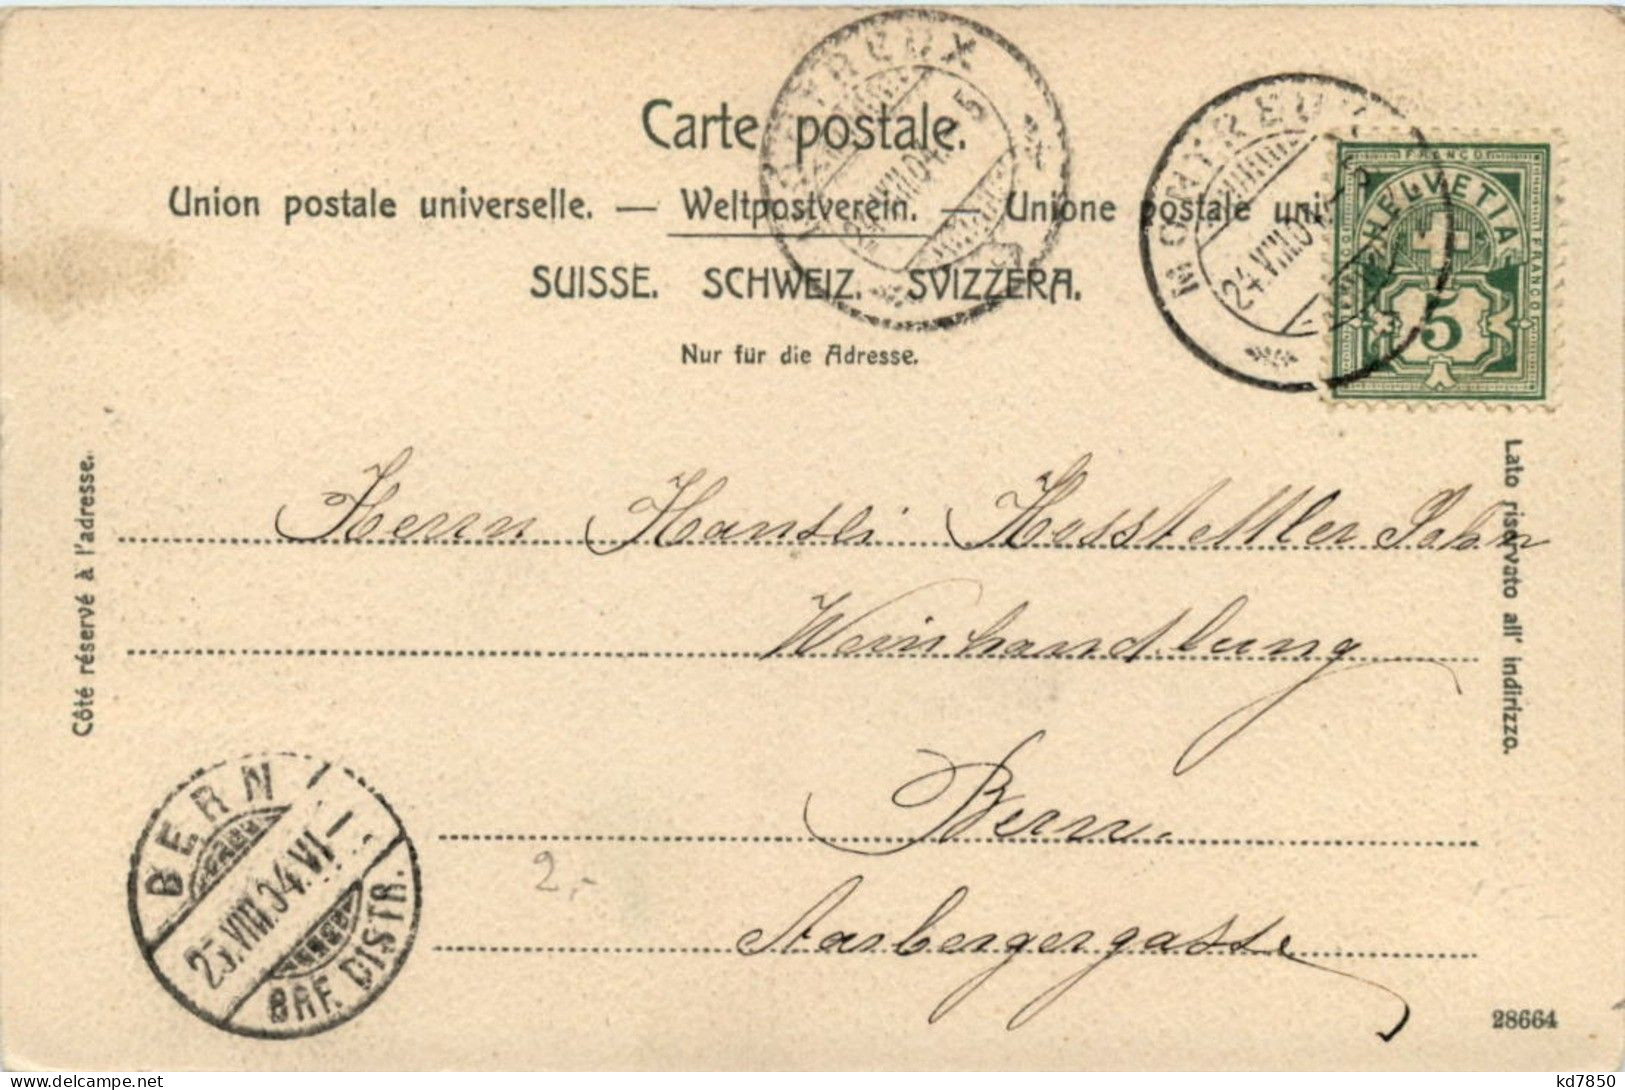 Carte postale.
Union postale universelle. — Weltpostverein. — Unione postale uni
SUISSE. SCHWEIZ. SVIZZERA.
Nur für die Adresse.
MONTREUX
24.VIII.04.-5
MONTREUX
24.VIII.04.-5
FRANCO
HELVETIA
FRANCO
5
Côté réservé à l'adresse.
Lato riservato all' indirizzo.
Herrn Hansli Hosstettler Sohn
Weinhandlung
Bern.
Aarbergergasse
2,-
BERN
25.VIII.04.VI—
BRF. DISTR.
28664
delcampe.net
kd7850